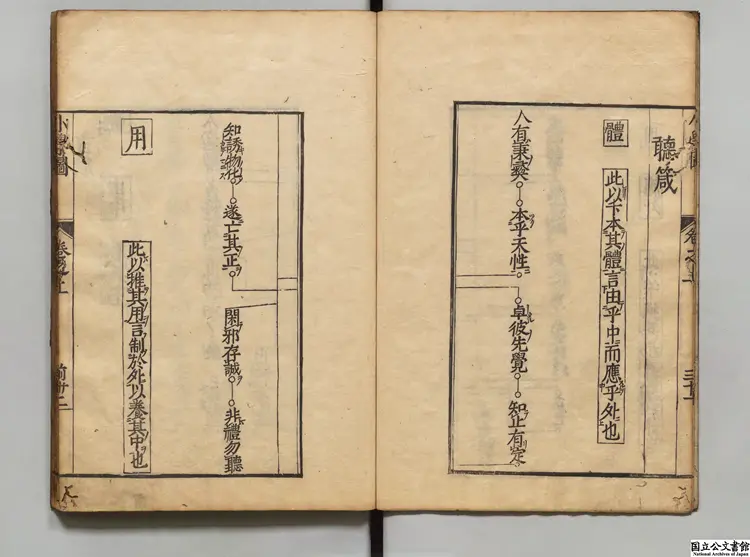 聽箴
體
此以下本其體言由乎中而應乎外也
人有秉彝
本乎天性
卓彼先覺
知止有定
知誘物化
遂亡其正
閑邪存誠
非禮勿聽
用
此以推其用言制於外以養其中也
小學圖
卷之上
前廿二
国立公文書館
National Archives of Japan